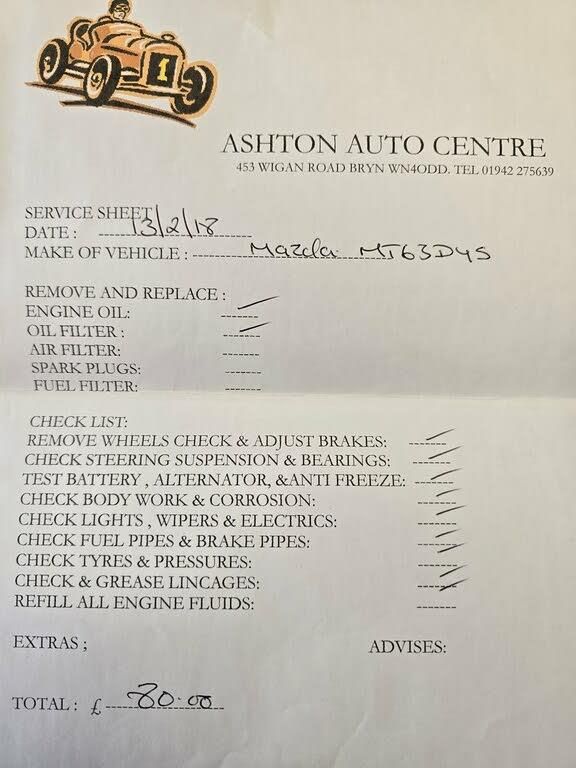 1
ASHTON AUTO CENTRE
453 WIGAN ROAD BRYN WN4ODD. TEL 01942 275639
SERVICE SHEET
DATE : 13/2/18
MAKE OF VEHICLE : Mazda MT63DYS
REMOVE AND REPLACE :
ENGINE OIL:
OIL FILTER :
AIR FILTER:
SPARK PLUGS:
FUEL FILTER:
CHECK LIST:
REMOVE WHEELS CHECK & ADJUST BRAKES:
CHECK STEERING SUSPENSION & BEARINGS:
TEST BATTERY , ALTERNATOR, &ANTI FREEZE:
CHECK BODY WORK & CORROSION:
CHECK LIGHTS , WIPERS & ELECTRICS:
CHECK FUEL PIPES & BRAKE PIPES:
CHECK TYRES & PRESSURES:
CHECK & GREASE LINCAGES:
REFILL ALL ENGINE FLUIDS:
EXTRAS ; ADVISES:
TOTAL : £ 80.00